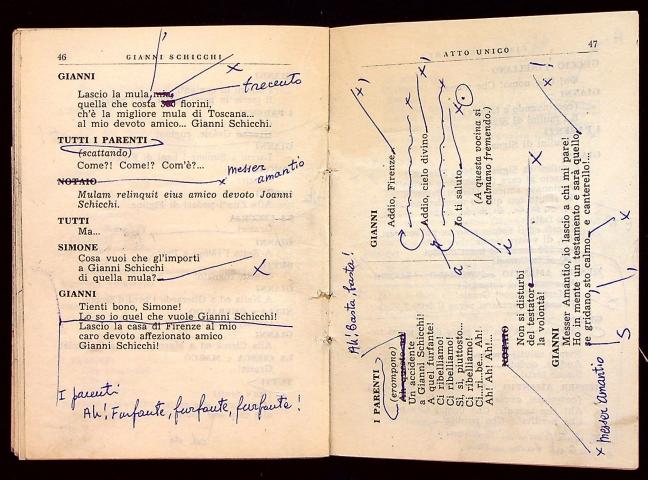 46
GIANNI SCHICCHI
GIANNI
Lascio la mula, mia,
quella che costa 300 fiorini, trecento
ch'è la migliore mula di Toscana...
al mio devoto amico... Gianni Schicchi.
TUTTI I PARENTI
(scattando)
Come?! Come!? Com'è?...
NOTAIO messer amantio
Mulam relinquit eius amico devoto Joanni
Schicchi.
TUTTI
Ma...
SIMONE
Cosa vuoi che gl'importi
a Gianni Schicchi
di quella mula?
GIANNI
Tienti bono, Simone!
Lo so io quel che vuole Gianni Schicchi!
Lascio la casa di Firenze al mio
caro devoto affezionato amico
Gianni Schicchi!
I parenti
Ah! Furfante, furfante, furfante!
ATTO UNICO
47
I PARENTI
Ah! Basta, basta!
(erompono)
Un accidente
a Gianni Schicchi!
A quel furfante!
Ci ribelliamo!
Ci ribelliamo!
Sì, sì, piuttosto...
Ci ribelliamo!
Ci..ri..be... Ah!
Ah! Ah! Ah!...
GIANNI
Addio, Firenze
Addio, cielo divino
Io ti saluto
(A questa vocina si
calmano fremendo.)
a
i
NOTAIO
x messer amantio
Non si disturbi
del testatore
la volontà!
GIANNI
Messer Amantio, io lascio a chi mi pare!
Ho in mente un testamento e sarà quello,
se gridano, sto calmo e canterello!...
S